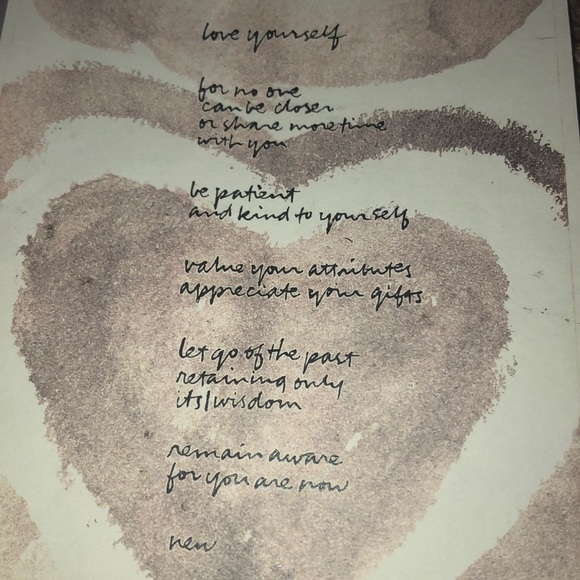 love yourself
for no one
can be closer
or share more time
with you
be patient
and kind to yourself
value your attributes
appreciate your gifts
let go of the past
retaining only
its wisdom
remain aware
for you are now
new